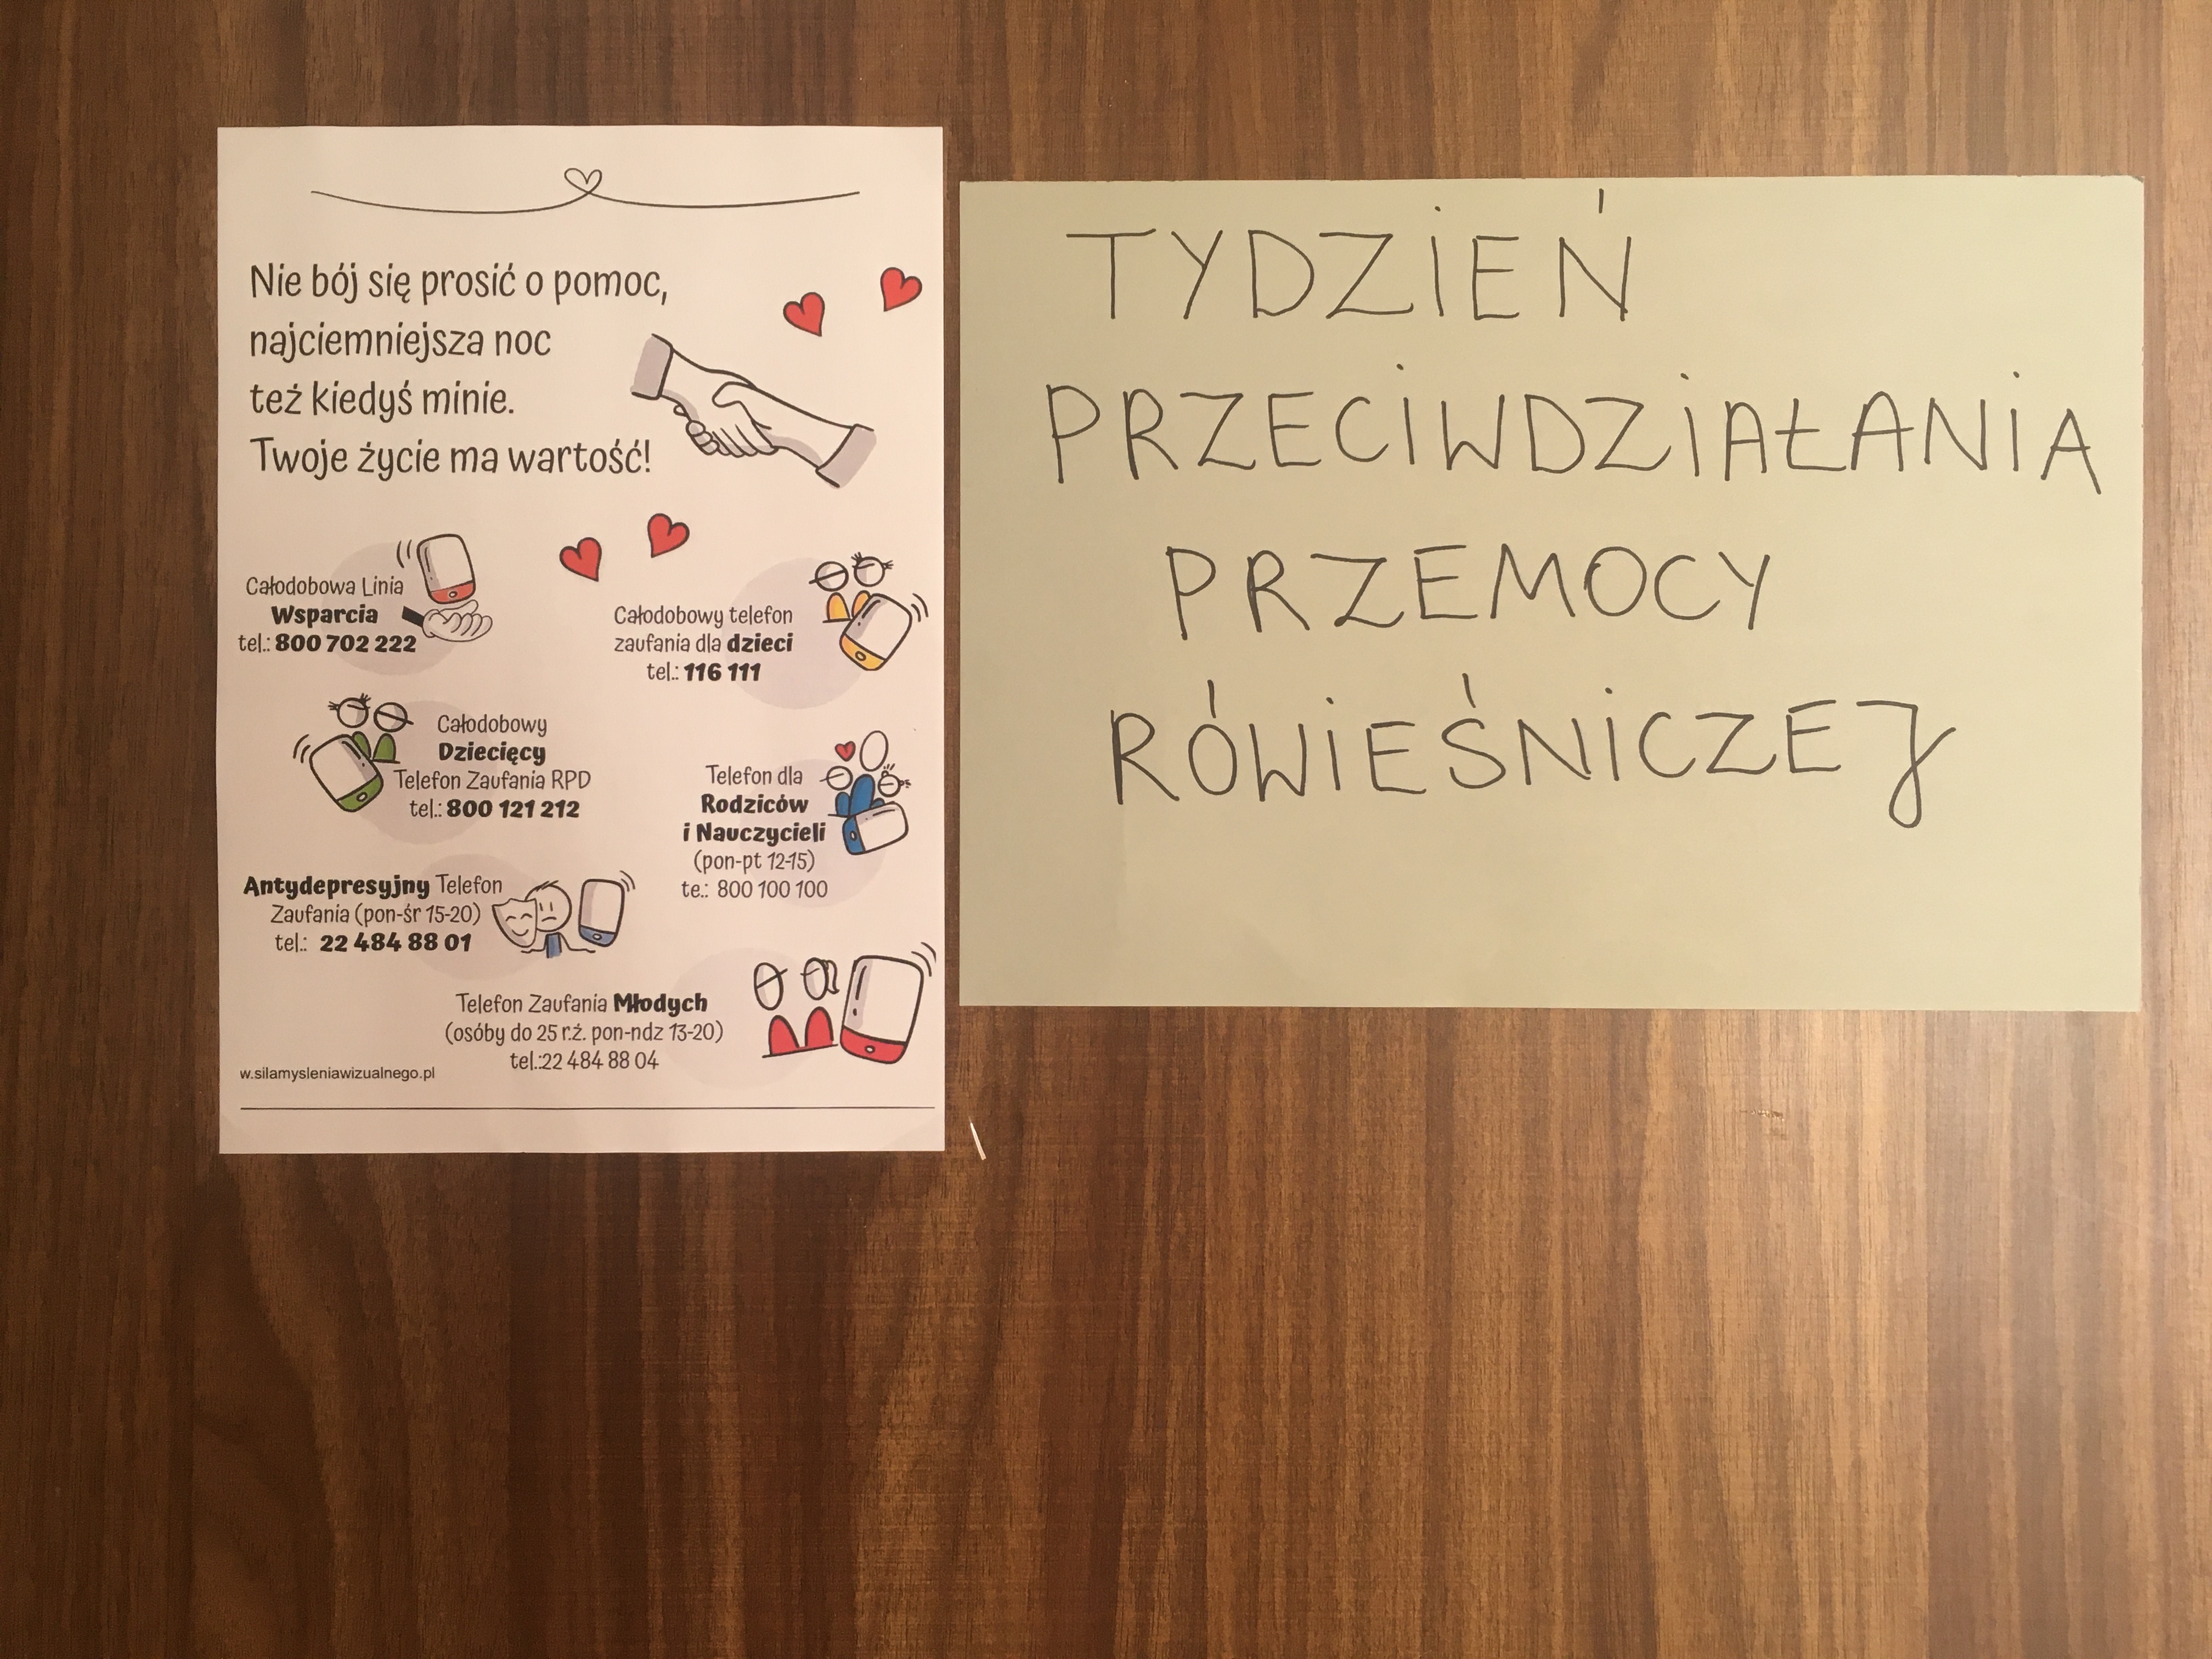 Nie bój się prosić o pomoc,
najciemniejsza noc
też kiedyś minie.
Twoje życie ma wartość!
Całodobowa Linia
Wsparcia
tel.: 800 702 222
Całodobowy telefon
zaufania dla dzieci
tel.: 116 111
Całodobowy
Dziecięcy
Telefon Zaufania RPD
tel.: 800 121 212
Telefon dla
Rodziców
i Nauczycieli
(pon-pt 12-15)
te.: 800 100 100
Antydepresyjny Telefon
Zaufania (pon-śr 15-20)
tel.: 22 484 88 01
Telefon Zaufania Młodych
(osóby do 25 r.ż. pon-ndz 13-20)
tel.:22 484 88 04
w.silamysleniawizualnego.pl
TYDZIEŃ
PRZECIWDZIAŁANIA
PRZEMOCY
RÓWIEŚNICZEJ